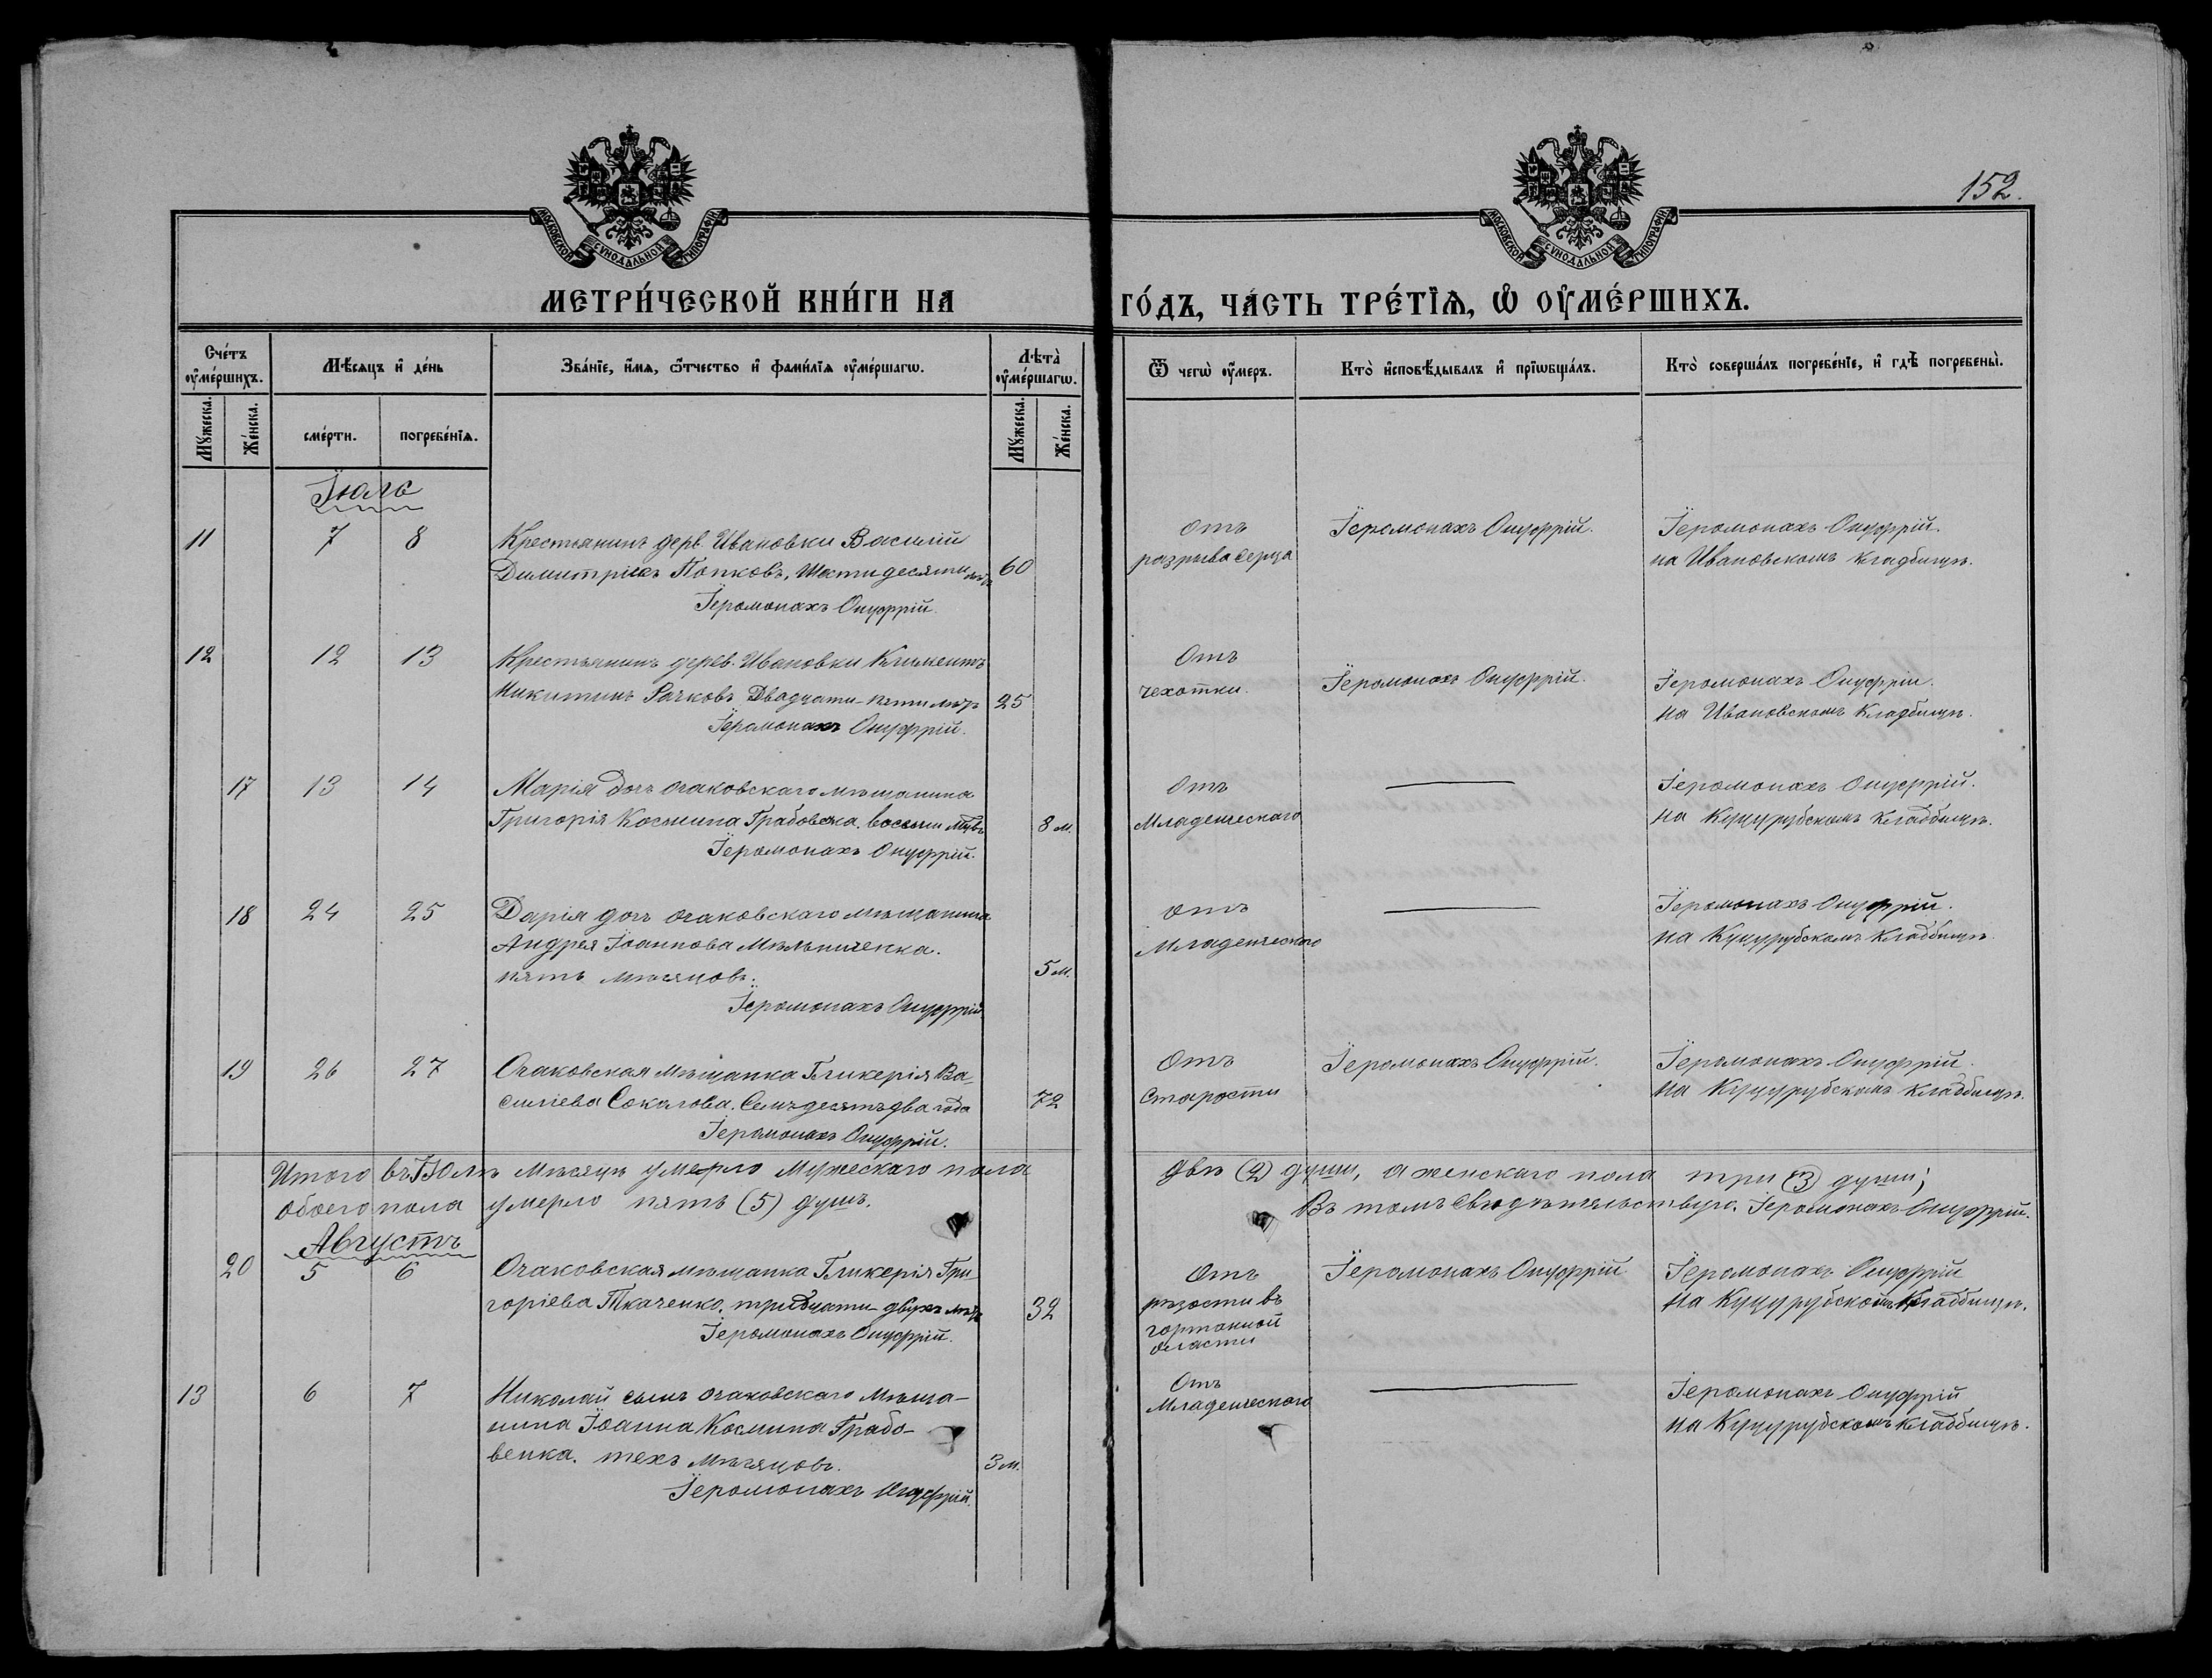 152.
МОСКОВСКОЙ СѴНОДАЛЬНОЙ ТИПОГРАФІИ
МОСКОВСКОЙ СѴНОДАЛЬНОЙ ТИПОГРАФІИ
МЕТРИ́ЧЕСКОЙ КНИ́ГИ НА ГО́ДЪ, ЧА́СТЬ ТРЕ́ТІѦ, Ѡ҆ ОУ҆МЕ́РШИХЪ.
Сче́тъ оу҆ме́ршихъ.
Мѣсяцъ и҆ де́нь
Зва́нїе, и҆́мя, ѻ҆́тчество и҆ фами́лїя оу҆ме́ршагѡ.
Лѣта̀ оу҆ме́ршагѡ.
Ѿ чегѡ̀ оу҆́меръ.
Кто̀ и҆сповѣ́дывалъ и҆ прїѡбща́лъ.
Кто̀ соверша́лъ погребе́нїе, и҆ гдѣ̀ погребены̀.
Мꙋ́жеска.
Же́нска.
сме́рти.
погребе́нїя.
Мꙋ́жеска.
Же́нска.
Іюль
11 7 8 Крестьянинъ дерв. Ивановки Василій
Димитріевъ Попковъ, Шестидесяти лѣтъ 60
Іеромонахъ Онуфрій.
отъ
разрыва серца
Іеромонахъ Онуфрій.
Іеромонахъ Онуфрій.
на Ивановскомъ кладбищѣ.
12 12 13 Крестьянинъ дерев. Ивановки Климентъ
Никитинъ Рачковъ Двадцати-пяти лѣтъ 25
Іеромонахъ Онуфрій.
Отъ
чехотки.
Іеромонахъ Онуфрій.
Іеромонахъ Онуфрій.
на Ивановскомъ Кладбищѣ.
17 13 14 Марія доч очаковскаго мѣщанина
Григорія Космина Грабовенка. восьми мѣ. 8 м.
Іеромонахъ Онуфрій.
Отъ
Младенческаго
Іеромонахъ Онуфрій.
на Куцурубскомъ кладбищѣ.
18 24 25 Дарія доч очаковскаго мѣщанина
Андрея Іоаннова Мѣльниченка.
пять мѣсяцовъ. 5 м.
Іеромонахъ Онуфрій
отъ
Младенческаго
Іеромонахъ Онуфрій.
на Куцурубскомъ Кладбищѣ.
19 26 27 Очаковская мѣщанка Гликерія Ва-
силіева Соколова. Семъдесятъ два года 72
Іеромонахъ Онуфрій.
Отъ
Старости
Іеромонахъ Онуфрій.
Іеромонахъ Онуфрій.
на Куцурубскомъ кладбищѣ.
Итого въ Іюлѣ мѣсяцѣ умерло мужескаго пола двѣ (2) души, а женскаго пола три (3) души;
обоего пола умерло пять (5) душъ. Въ томъ свидѣтельствую. Іеромонахъ Онуфрій.
Августъ
20 5 6 Очаковская мѣщанка Гликерія Гри-
горіева Ткаченко. тридцати-двухъ лѣтъ 32
Іеромонахъ Онуфрій.
Отъ
рѣзости въ
гортанной
области
Іеромонахъ Онуфрій
Іеромонахъ Онуфрій
на Куцурубскомъ Кладбищѣ.
13 6 7 Николай сынъ очаковскаго мѣща-
нина Іоанна Космина Грабо-
венка. техъ мѣсяцовъ. 3 м.
Іеромонахъ Онуфрій.
Отъ
Младенческаго
Іеромонахъ Онуфрій
на Куцурубскомъ кладбищѣ.